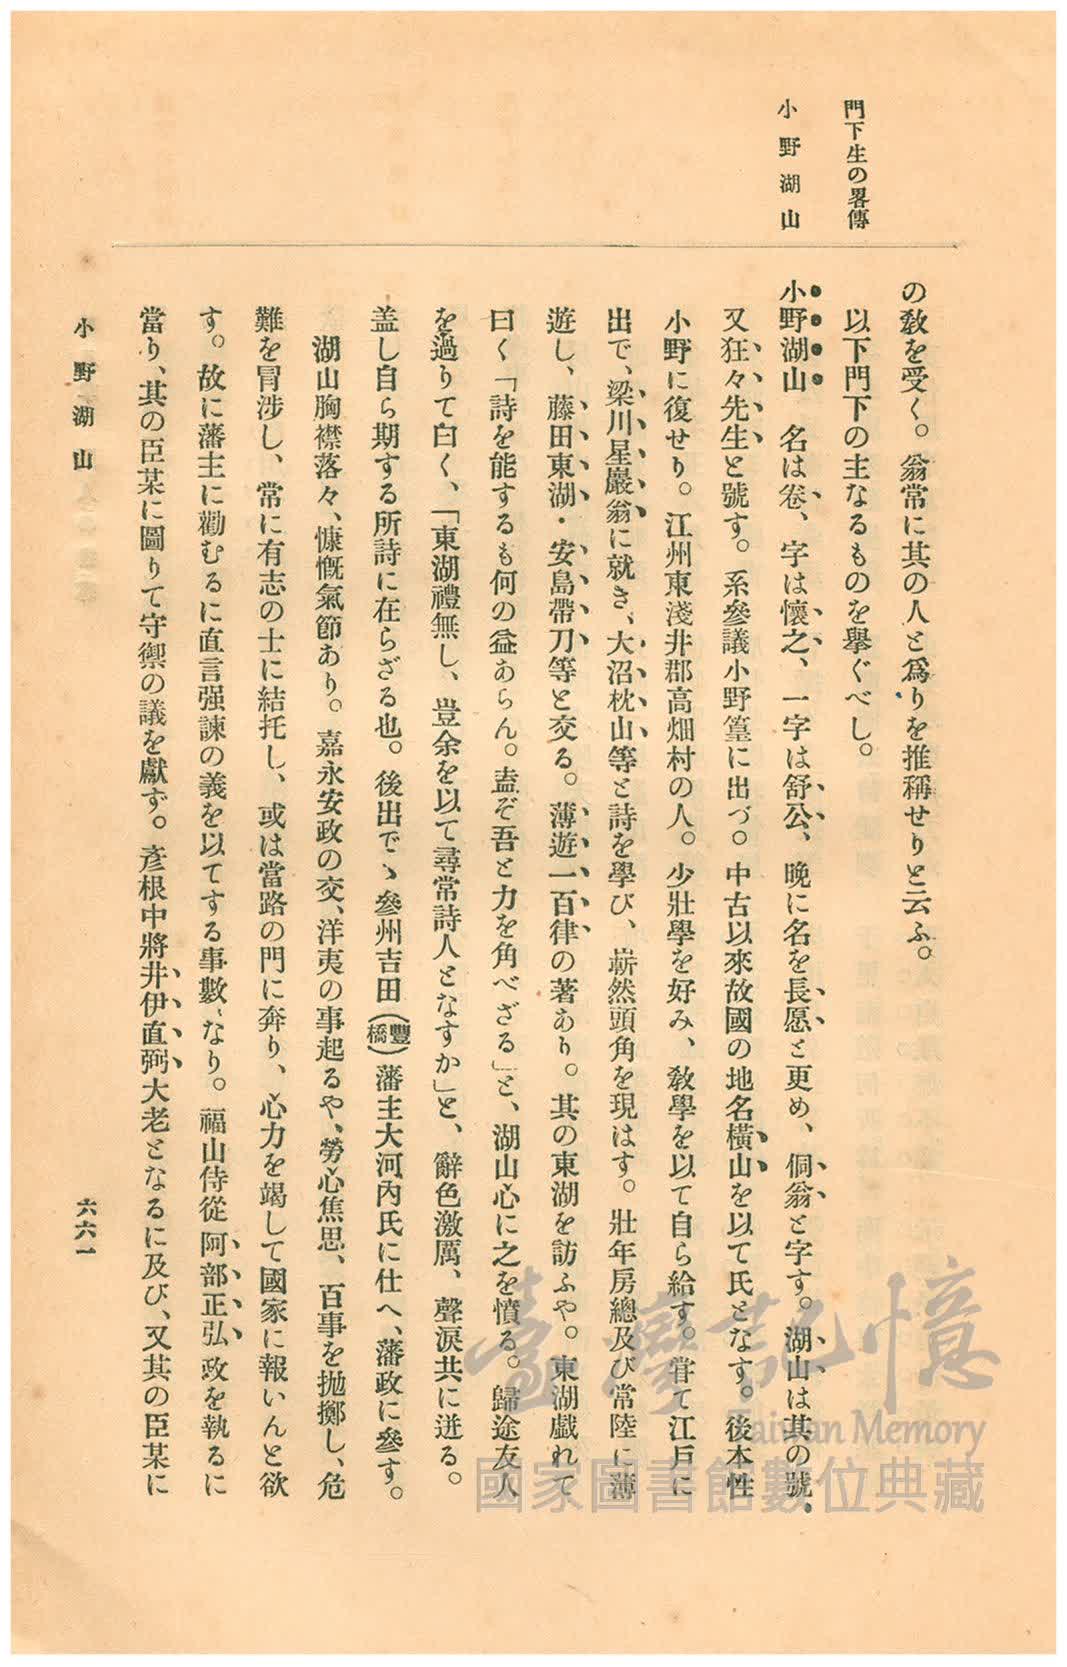 門下生の畧傳
小野湖山
の敎を受く。翁常に其の人と爲りを推稱せりと云ふ。
以下門下の主なるものを擧ぐべし。
小野湖山　名は卷、字は懷之、一字は舒公、晩に名を長愿と更め、侗翁と字す。湖山は其の號、
又狂々先生と號す。系參議小野篁に出づ。中古以來故國の地名橫山を以て氏となす。後本性
小野に復せり。江州東淺井郡高畑村の人。少壯學を好み、敎學を以て自ら給す。甞て江戶に
出で、梁川星巖翁に就き、大沼枕山等と詩を學び、嶄然頭角を現はす。壯年房總及び常陸に薄
遊し、藤田東湖・安島帶刀等と交る。薄遊一百律の著あり。其の東湖を訪ふや。東湖戱れて
曰く「詩を能するも何の益あらん。盍ぞ吾と力を角べざる」と、湖山心に之を憤る。歸途友人
を過りて曰く、「東湖禮無し、豈余を以て尋常詩人となすか」と、辭色激厲、聲淚共に迸る。
盖し自ら期する所詩に在らざる也。後出でゝ參州吉田（豐橋）藩主大河內氏に仕へ、藩政に參す。
湖山胸襟落々、慷慨氣節あり。嘉永安政の交、洋夷の事起るや、勞心焦思、百事を拋擲し、危
難を冒涉し、常に有志の士に結托し、或は當路の門に奔り、心力を竭して國家に報いんと欲
す。故に藩主に勸むるに直言强諫の義を以てする事數〻なり。福山侍從阿部正弘政を執るに
當り、其の臣某に圖りて守禦の議を獻ず。彥根中將井伊直弼大老となるに及び、又其の臣某に
小野湖山
六六一
臺灣記憶
Taiwan Memory
國家圖書館數位典藏